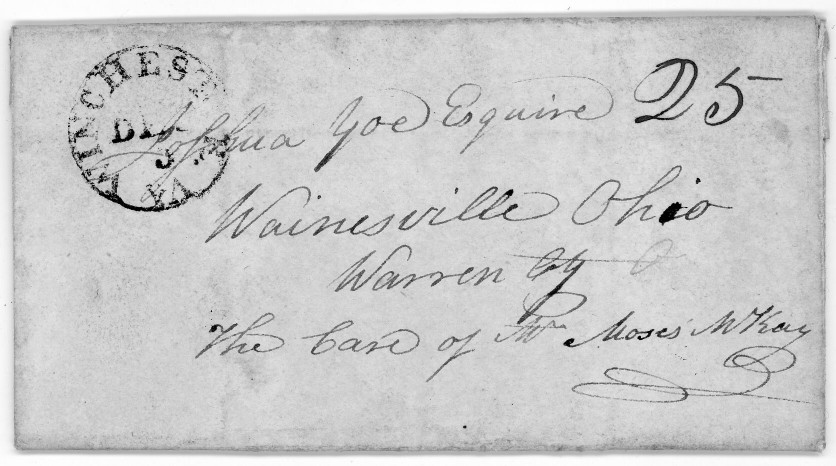 WINCHEST
VA
DEC
5
Joshua Yoe Esquire 25
Wainesville Ohio
Warren Cty O
The Care of Mr Moses McKay